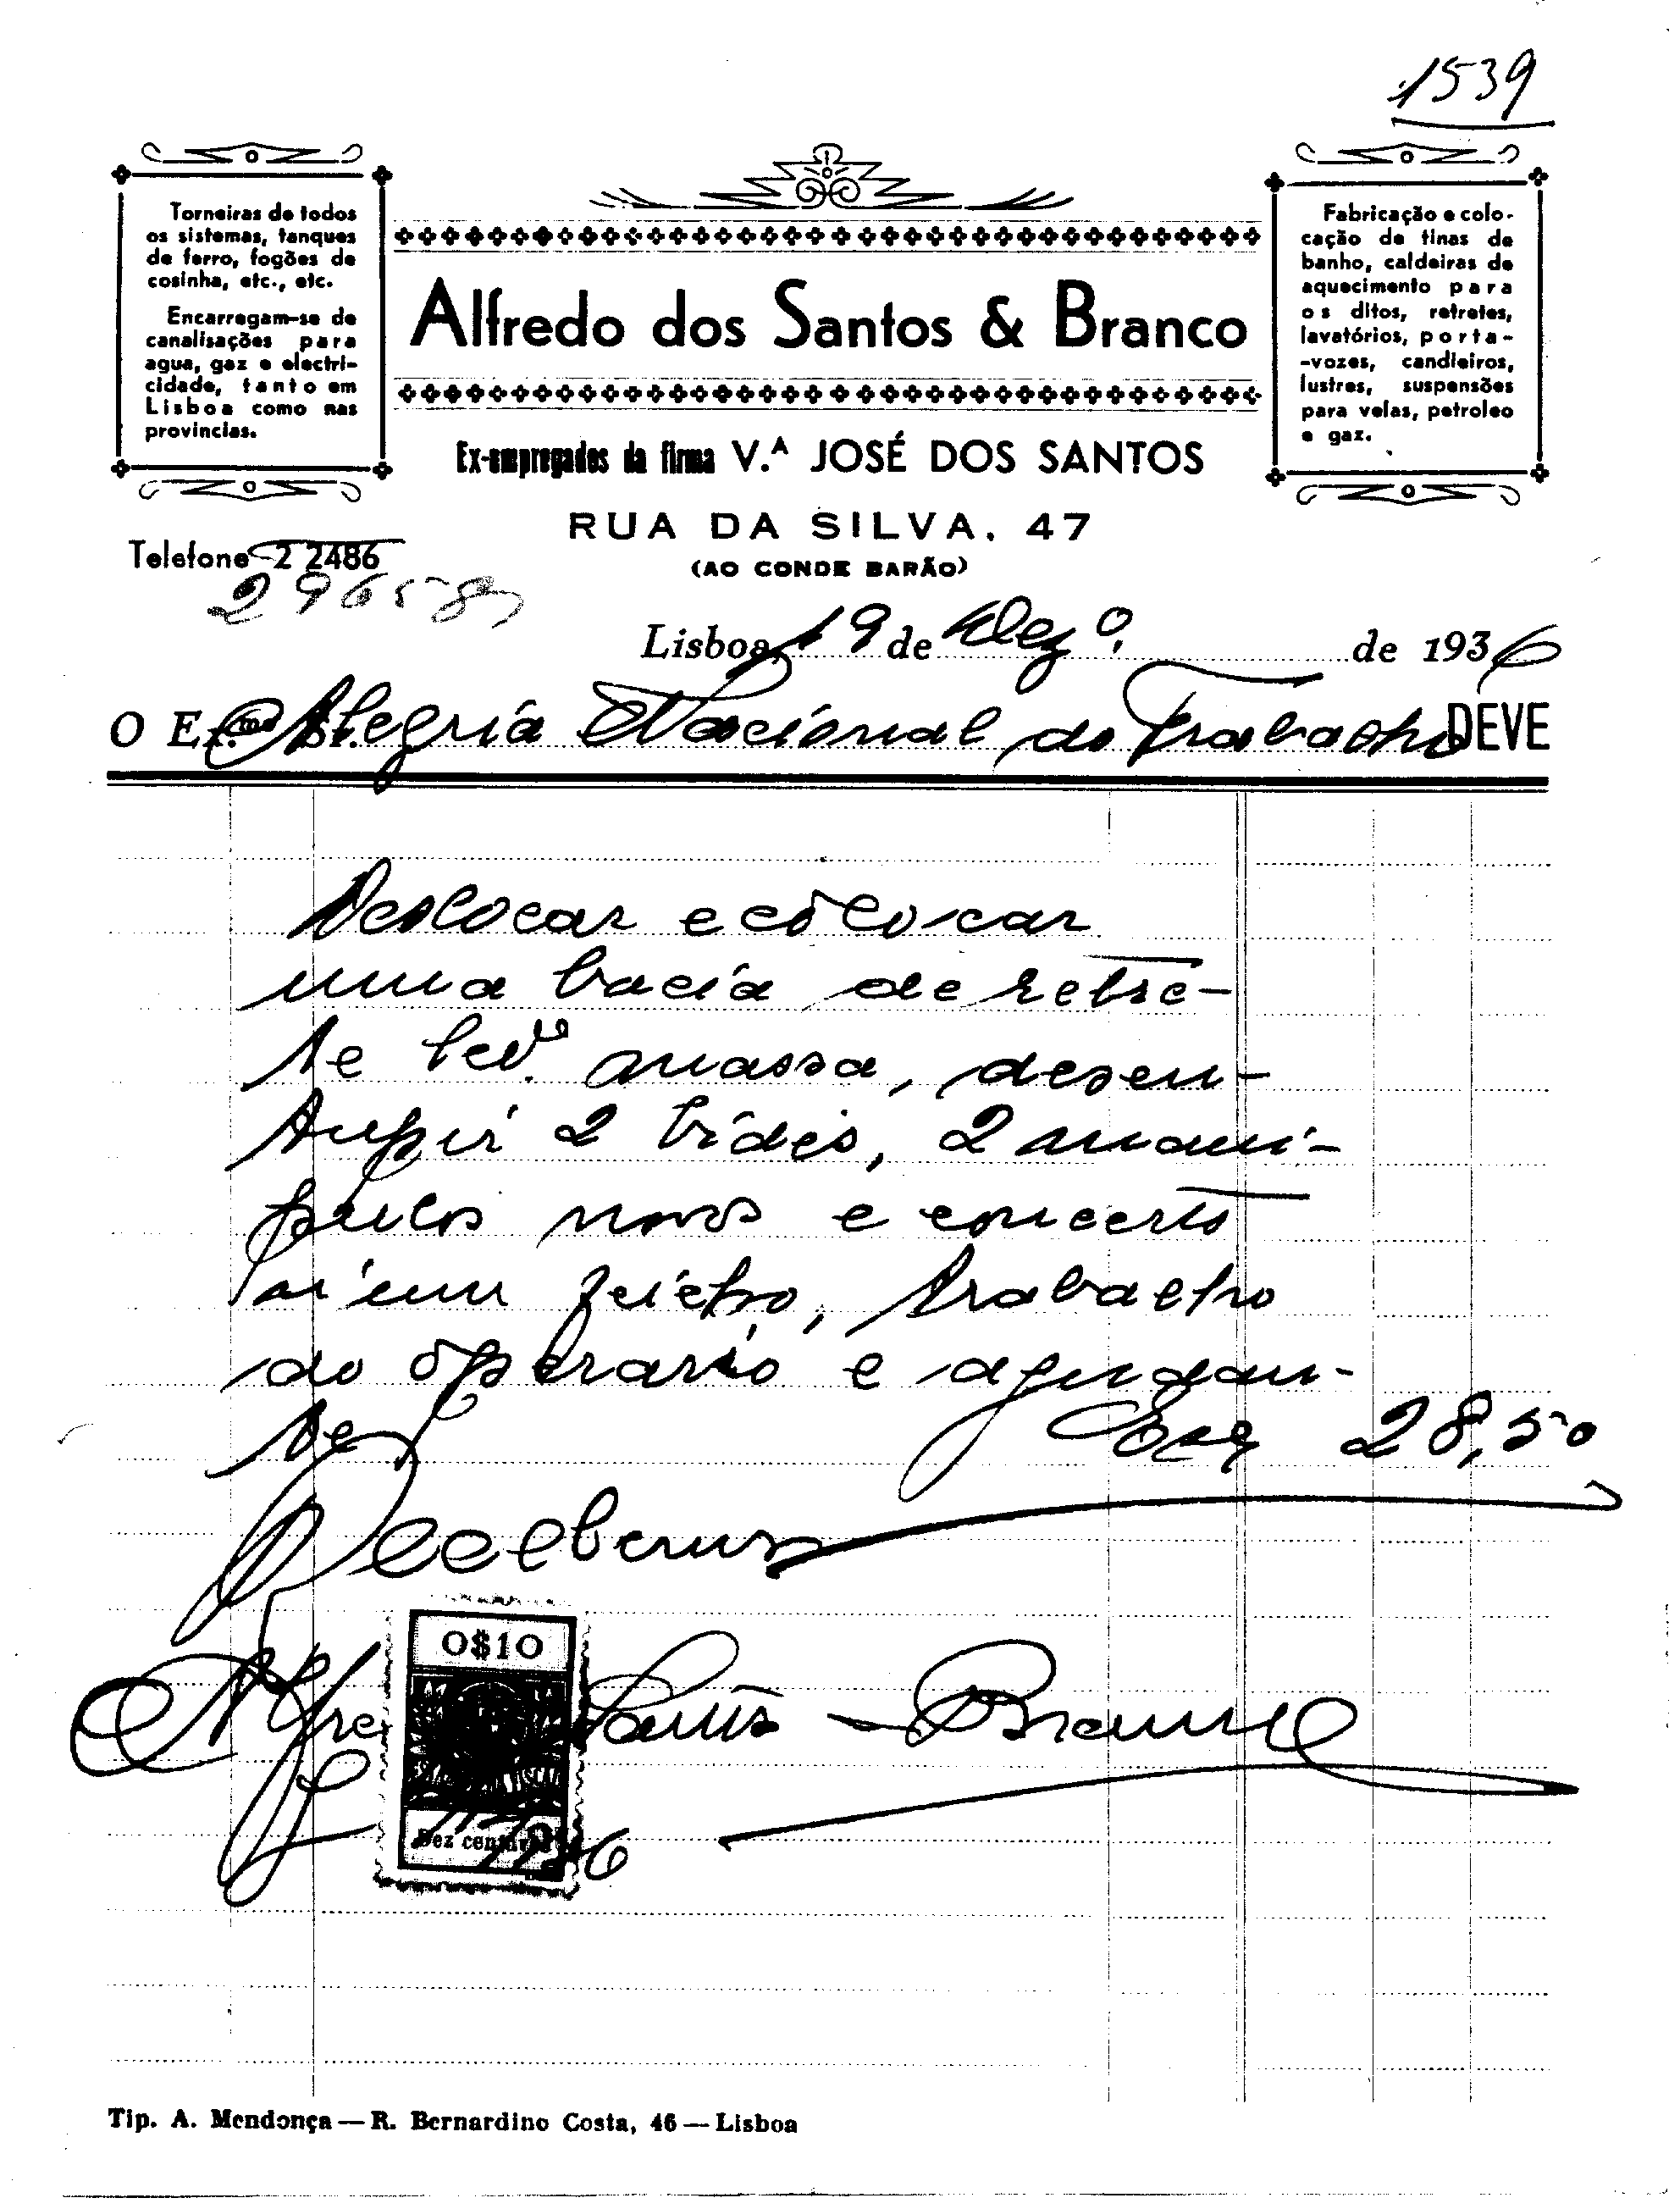 1539
Torneiras de todos
os sistemas, tanques
de ferro, fogões de
cosinha, etc., etc.
Encarregam-se de
canalisações para
agua, gaz e electri-
cidade, tanto em
Lisboa como nas
provincias.
Alfredo dos Santos & Branco
Ex-empregados da firma V.ª JOSÉ DOS SANTOS
RUA DA SILVA, 47
(AO CONDE BARÃO)
Fabricação e colo-
cação de tinas de
banho, caldeiras de
aquecimento para
os ditos, retretes,
lavatórios, porta-
-vozes, candieiros,
lustres, suspensões
para velas, petroleo
e gaz.
Telefone 2 2486
Lisboa, 19 de Dezº de 1936
O Ex.mo Sr. Alegria Nacional do Trabalho DEVE
Deslocar e colocar
uma bacia de retre-
te levº massa, desen-
tupir 2 bides, 2 mani-
pulos novos e concerto
em um feicho, trabalho
do operario e ajudan-
te Esc 28,50
Recebemos
Alfre Santos Branco
0$10
Dez centavos
Tip. A. Mendonça — R. Bernardino Costa, 46 — Lisboa